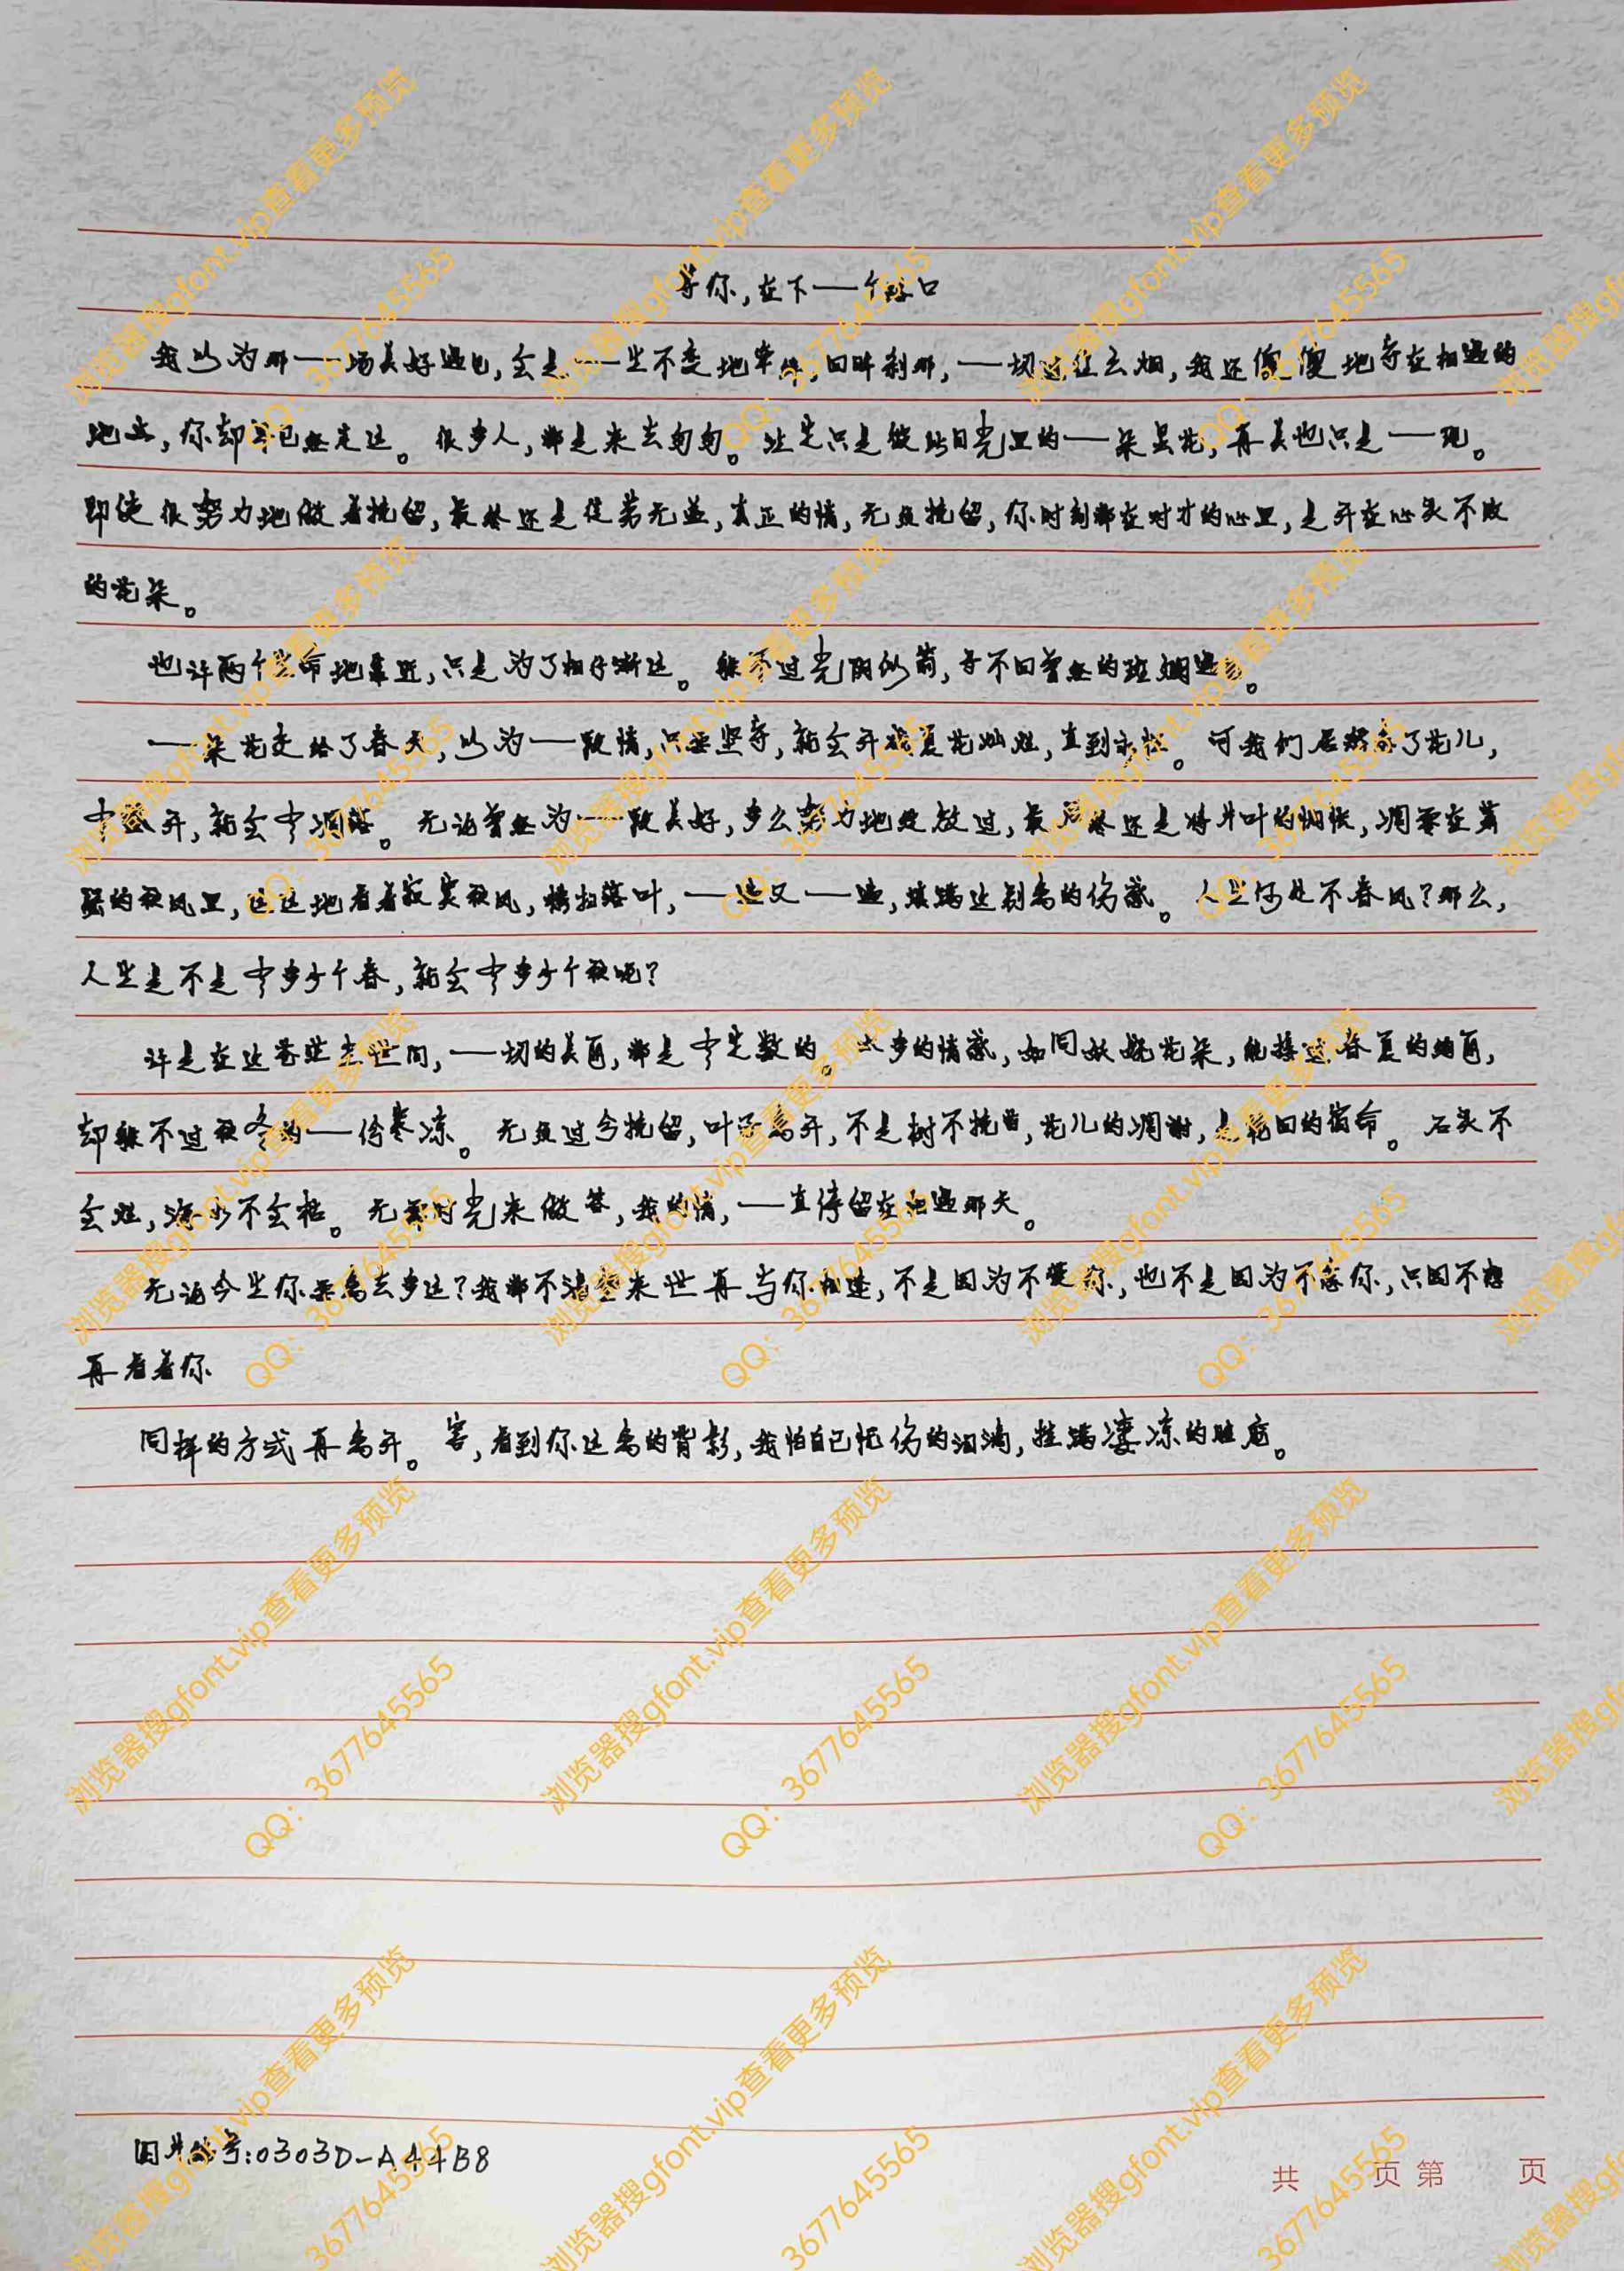 等你,在下一个路口
我以为那一场美好遇见,会是一生不变地牵伴,回眸刹那,一切过往云烟,我还傻傻地等在相遇的
地点,你却早已经走远。很多人,都是来去匆匆。注定只是彼此目光里的一朵昙花,再美也只是一现。
即使很努力地做着挽留,最终还是徒劳无益,真正的情,无须挽留,你时刻都在对方的心里,是开在心头不败
的花朵。
也许两个生命地靠近,只是为了相行渐远。躲不过光阴似箭,寻不回曾经的斑斓遇见。
一朵花交给了春天,以为一段情,只要坚守,就会开成夏花灿烂,直到永恒。可我们居然忘了花儿,
有盛开,就会有凋落。无论曾经为一段美好,多么努力地绽放过,最后终还是将片叶的惆怅,凋零在萧
瑟的秋风里,远远地看着寂寞秋风,横扫落叶,一遍又一遍,填满远别离的伤感。人生何处不春风?那么,
人生是不是有多少个春,就会有多少个秋呢?
许是在这苍茫尘世间,一切的美丽,都是有定数的。太多的情感,如同妖娆花朵,能接过春夏的绚丽,
却躲不过秋冬的一份寒凉。无须过分挽留,叶子离开,不是树不挽留,花儿的凋谢,是轮回的宿命。石头不
会烂,海水不会枯。无需时光来做答,我的情,一直停留在相遇那天。
无论今生你要离去多远?我都不清楚来世再与你相逢,不是因为不爱你,也不是因为不念你,只因不想
再看着你
同样的方式再离开。害,看到你远离的背影,我怕自己忧伤的泪滴,挂满凄凉的脸庞。
图片编号:0303D-A44B8
共 页 第 页
浏览器搜gfont.vip查看更多预览
QQ:3677645565